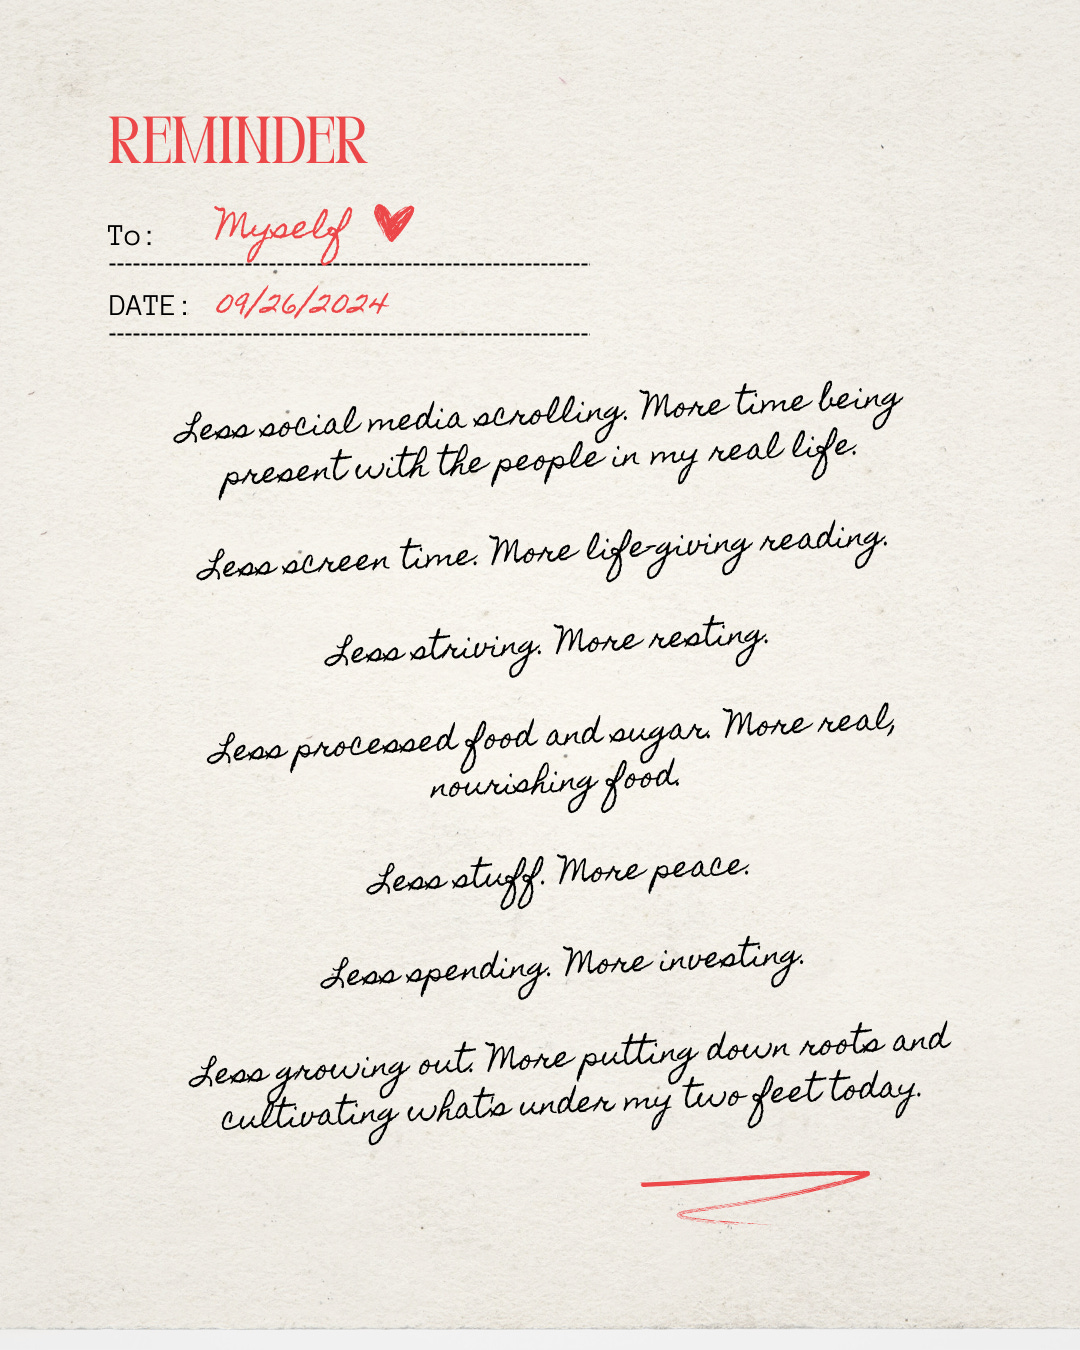 REMINDER
To: Myself
DATE: 09/26/2024
Less social media scrolling. More time being
present with the people in my real life.
Less screen time. More life-giving reading.
Less striving. More resting.
Less processed food and sugar. More real,
nourishing food.
Less stuff. More peace.
Less spending. More investing.
Less growing out. More putting down roots and
cultivating what's under my two feet today.